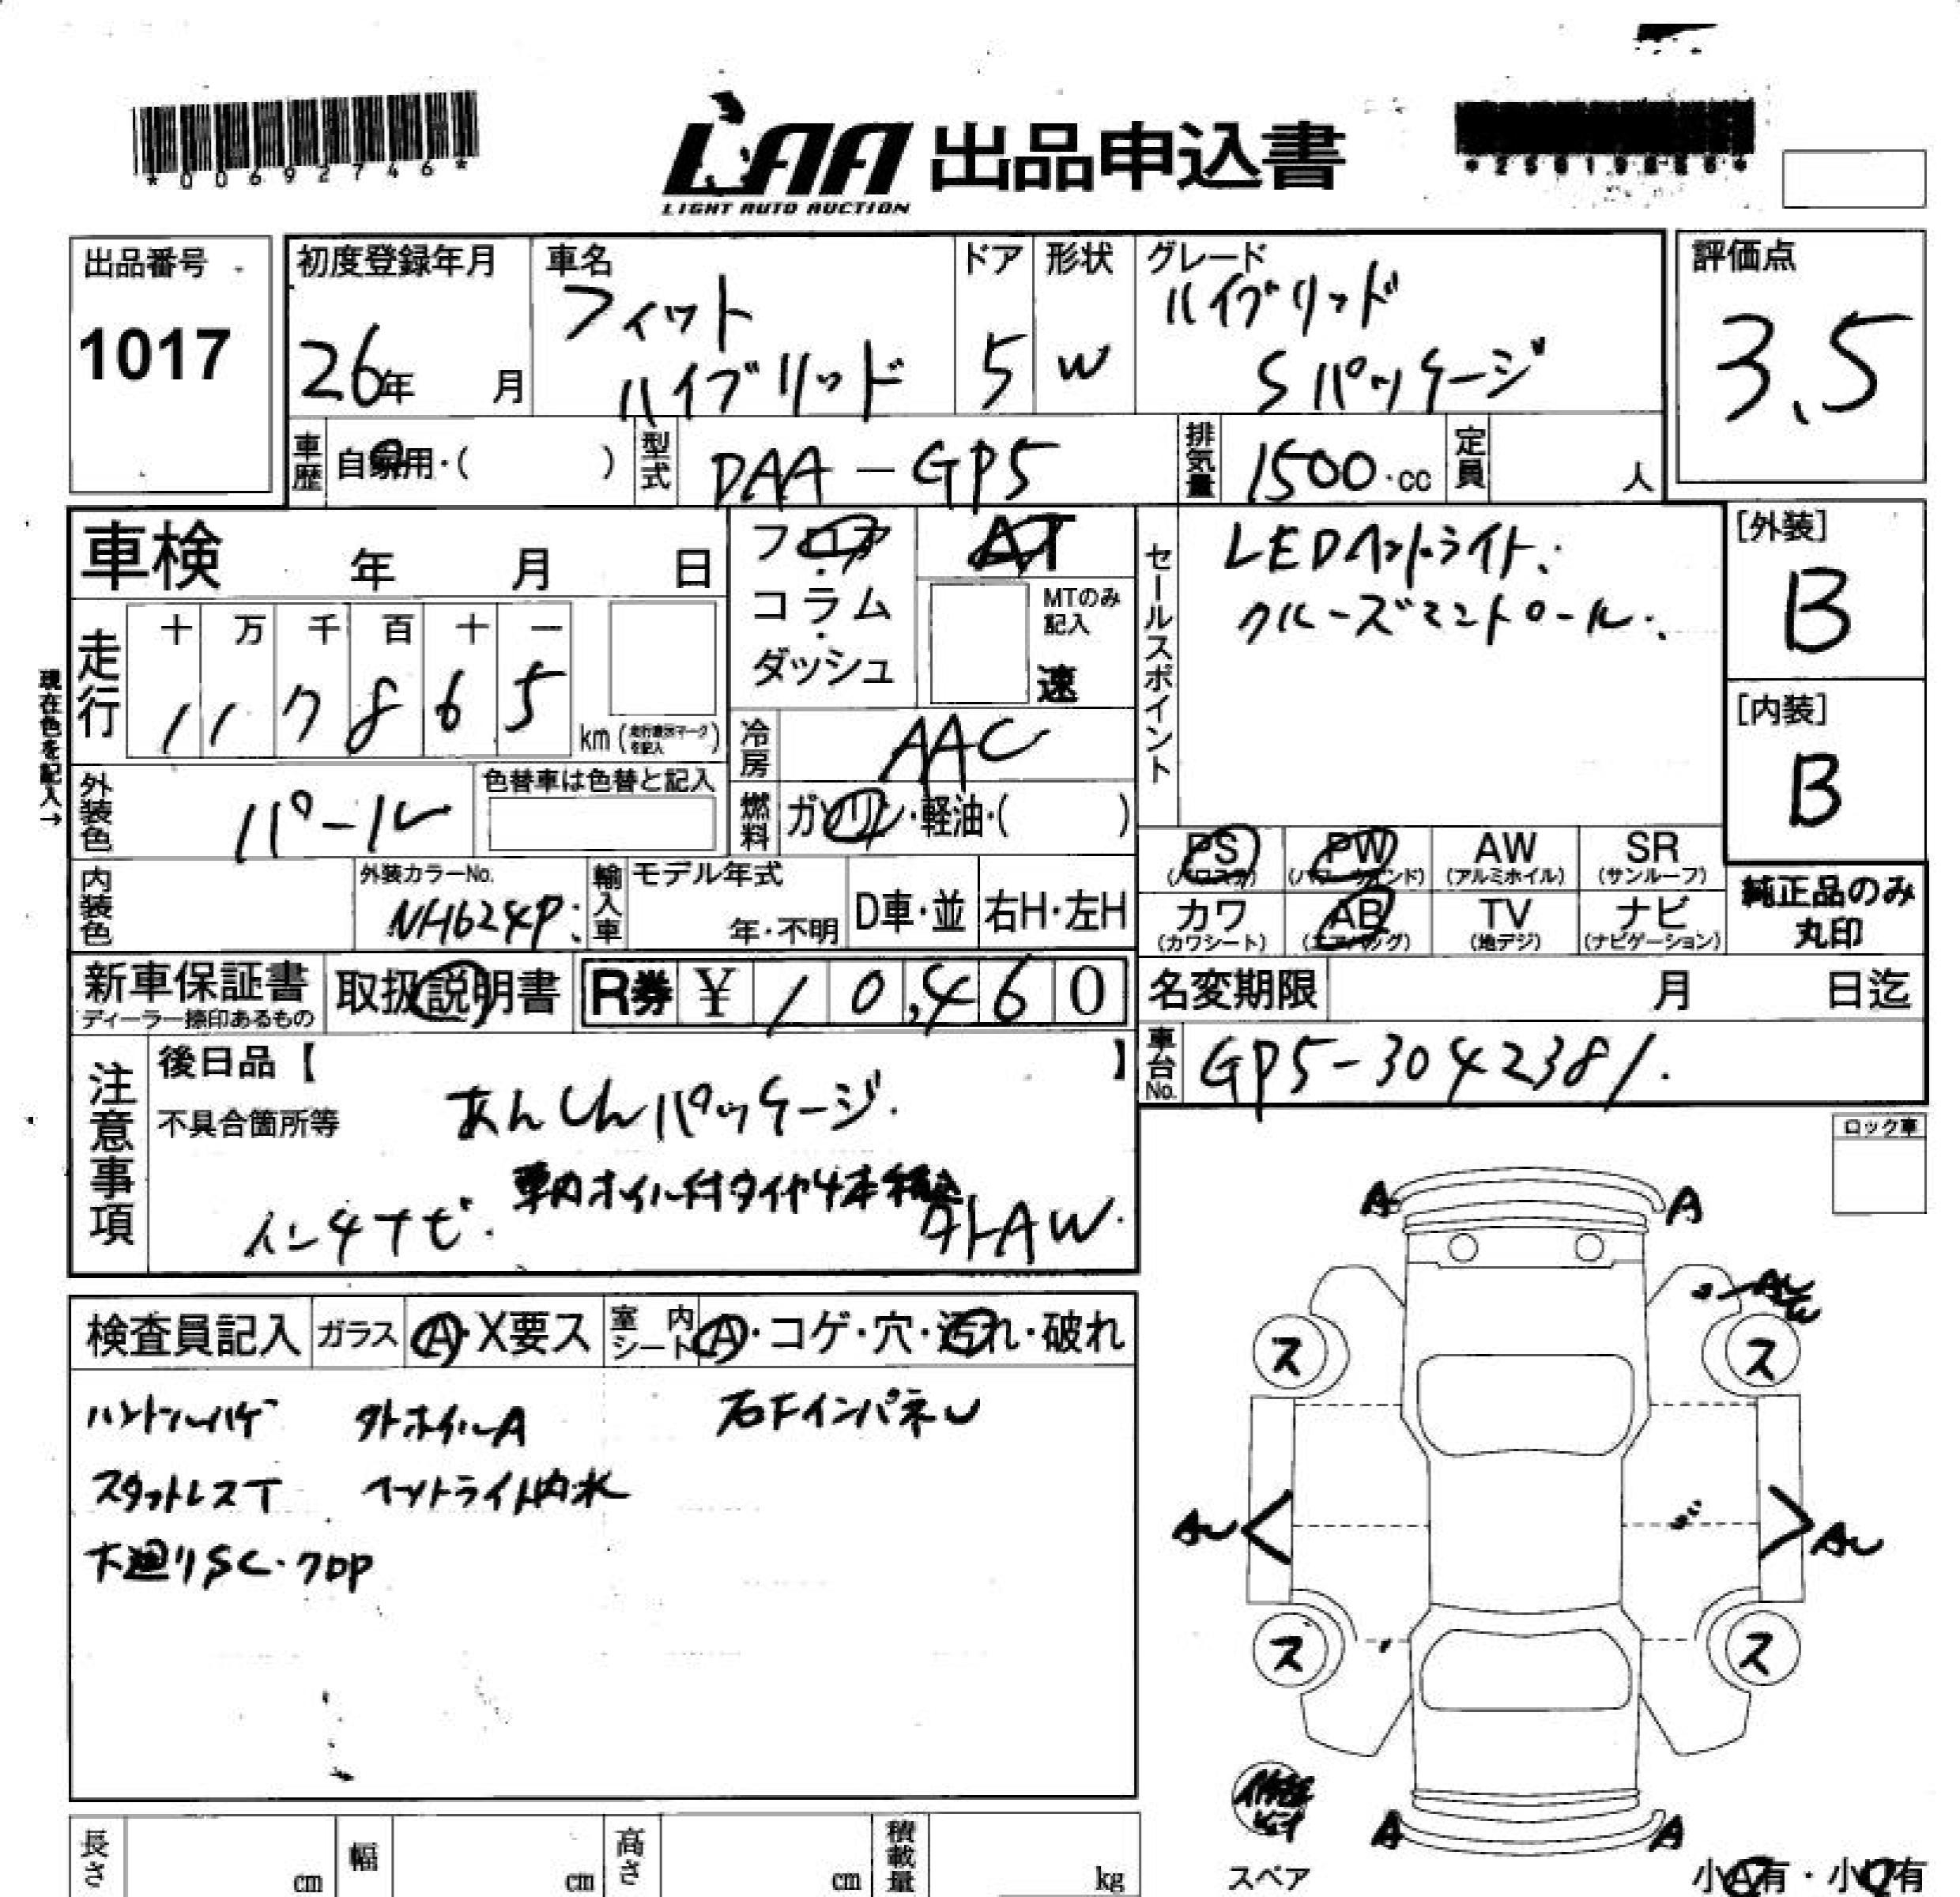 *00692746*
LAA 出品申込書
LIGHT AUTO AUCTION
出品番号
1017
初度登録年月
26年 月
車名
フィット
ハイブリッド
ドア
5
形状
W
グレード
ハイブリッド
Sパッケージ
評価点
3.5
車歴 自家用・( )
型式 DAA-GP5
排気量 1500.cc
定員 人
車検 年 月 日
フロア・コラム・ダッシュ
AT
MTのみ記入
速
セールスポイント
LEDヘットライト.
クルーズコントロール.
[外装]
B
[内装]
B
現在色を記入→
走行
十 万 千 百 十 一
1 1 7 8 6 5
km
冷房 AAC
外装色 パール
色替車は色替と記入
燃料 ガソリン・軽油・( )
内装色
外装カラーNo.
NH624P.
輸入車
モデル年式
年・不明
D車・並
右H・左H
PS (パワステ)
PW (パワーウインド)
AW (アルミホイル)
SR (サンルーフ)
カワ (カワシート)
AB (エアバッグ)
TV (地デジ)
ナビ (ナビゲーション)
純正品のみ
丸印
新車保証書
ディーラー捺印あるもの
取扱説明書
R券 ¥10,460
名変期限 月 日迄
車台No. GP5-3042381.
注意事項
後日品【 】
不具合箇所等
あんしんパッケージ.
車内ホイル付タイヤ4本積込
インタナビ.
外AW.
ロック車
検査員記入
ガラス A・X要ス
室内シート A・コゲ・穴・汚れ・破れ
ハンドルハゲ 外ホイルA 右FインパネU
スタットレスT ヘットライト内水
下廻りSC・フロP
A A
AU
ス ス
AU AU
ス ス
A A
スペア
小A有・小U有
長さ cm
幅 cm
高さ cm
積載量 kg